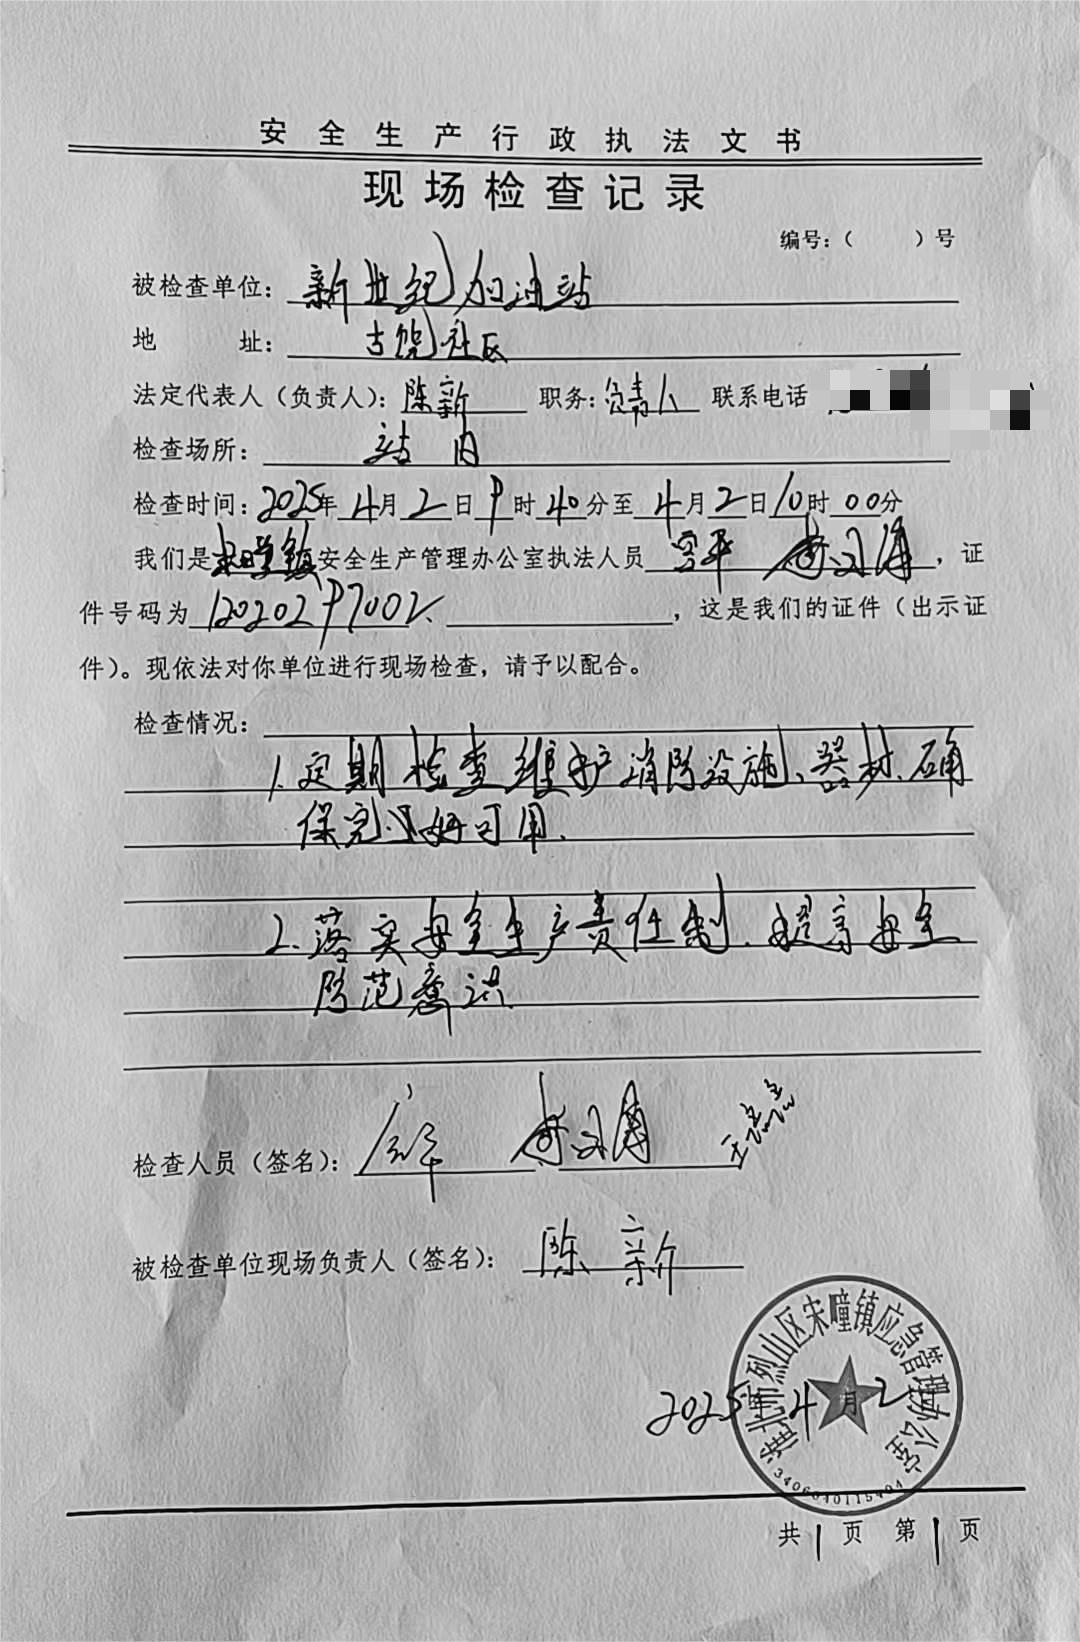 安全生产行政执法文书
现场检查记录
编号:（ ）号
被检查单位: 新世纪加油站
地 址: 古饶社区
法定代表人（负责人）: 陈新 职务: 负责人 联系电话
检查场所: 站内
检查时间: 2025年4月2日9时40分至4月2日10时00分
我们是宋疃镇安全生产管理办公室执法人员，证
件号码为12020297002、，这是我们的证件（出示证
件）。现依法对你单位进行现场检查，请予以配合。
检查情况:
1.定期检查维护消防设施、器材、确
保完好可用.
2.落实安全生产责任制、提高安全
防范意识
检查人员（签名）:
被检查单位现场负责人（签名）: 陈新
淮北市烈山区宋疃镇应急管理办公室
2025年4月2
共1页 第1页